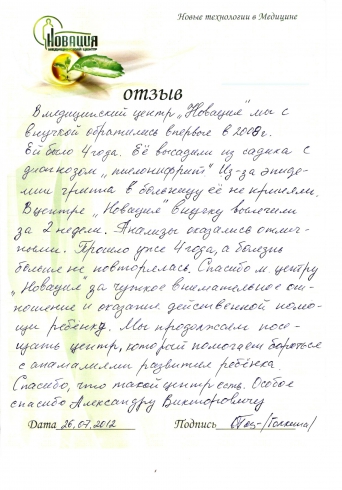 Новые технологии в Медицине
НОВАЦИЯ
МЕДИЦИНСКИЙ ЦЕНТР
ОТЗЫВ
В медицинский центр „Новация" мы с
внучкой обратились впервые в 2008г.
Ей было 4 года. Её высадили из садика с
диагнозом „пиелонефрит" Из-за эпиде-
мии гриппа в больницу её не приняли.
В центре „Новация" внучку вылечили
за 2 недели. Анализы оказались отлич-
ными. Прошло уже 4 года, а болезнь
больше не повторялась. Спасибо м. центру
„Новация" за чуткое внимательное от-
ношение и оказание действенной помо-
щи ребёнку. Мы продолжаем посе-
щать центр, который помогает бороться
с аномалиями развития ребёнка.
Спасибо, что такой центр есть. Особое
спасибо Александру Викторовичу
Дата 26.07.2012 Подпись